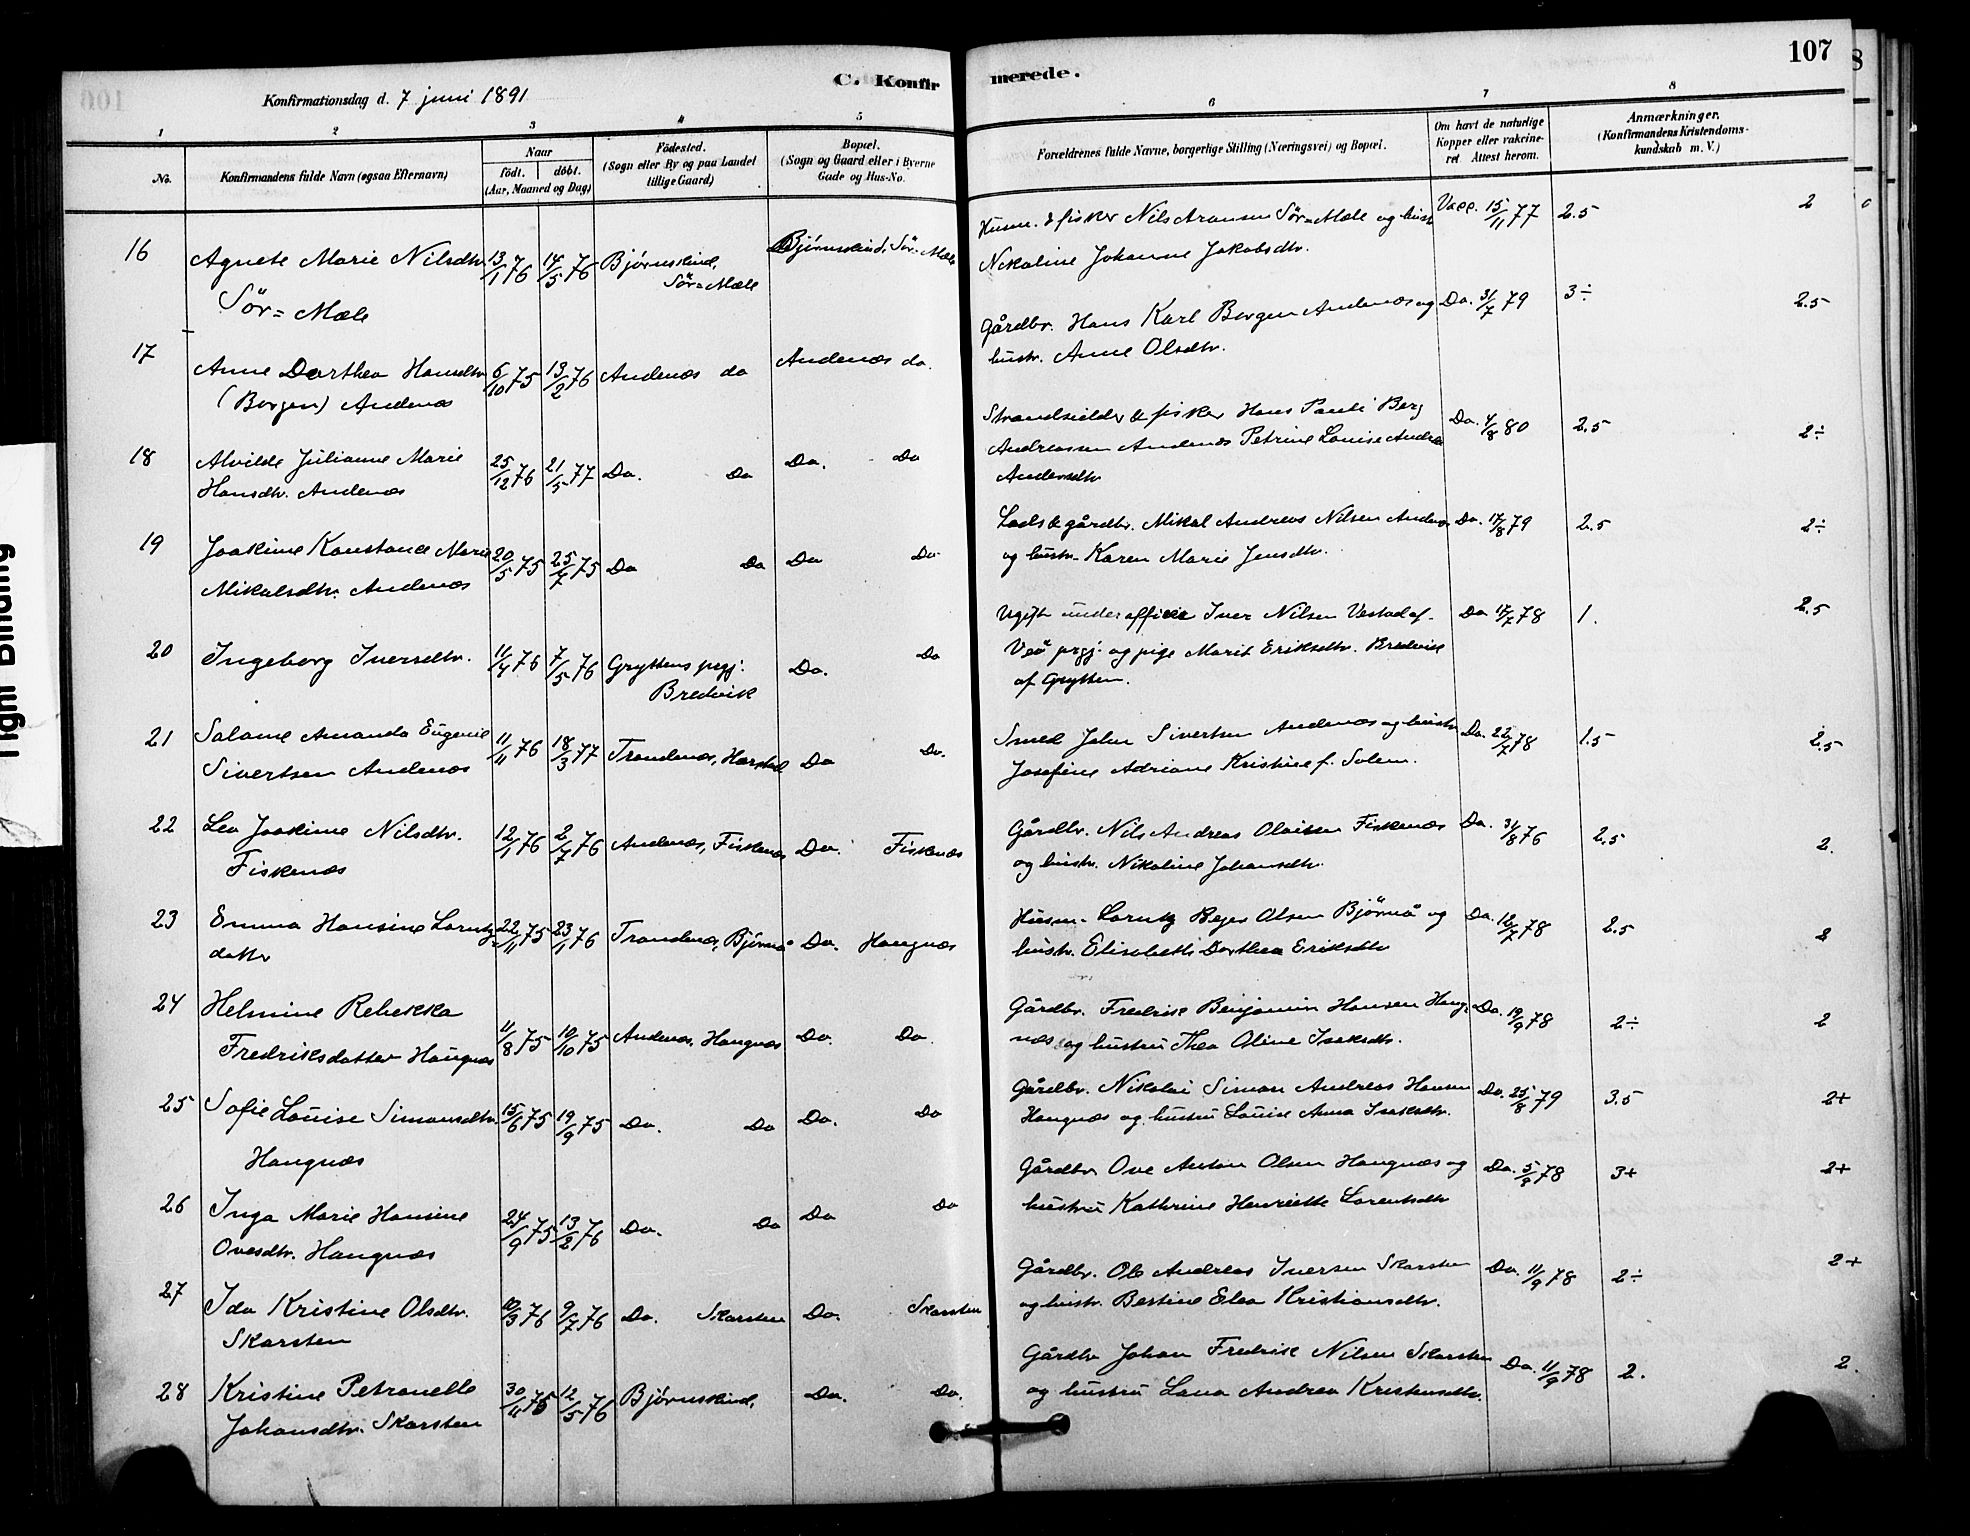 107
C. Konfirmerede.
Konfirmationsdag d. 7 juni 1891
1 2 3 4 5 6 7 8
No.
Konfirmandens fulde Navn (ogsaa Efternavn)
Naar
födt. döbt.
(Aar, Maaned og Dag)
Födested.
(Sogn eller By og paa Landet
tillige Gaard)
Bopæl.
(Sogn og Gaard eller i Byerne
Gade og Hus-No.
Forældrenes fulde Navne, borgerlige Stilling (Næringsvei) og Bopæl.
Om havt de naturlige
Kopper eller vakcine-
ret Attest herom.
Anmærkninger.
(Konfirmandens Kristendoms-
kundskab m. V.)
16 Agnete Marie Nilsdtr. 13/1 76 14/5 76 Bjørnskind, Bjørnskind, Sör=Mæle Husm. & fisker Nils Aronsen Sör=Mæle og hustr. Vacc. 15/11 77 2.5 2
Sör=Mæle Sör=Mæle Nikoline Johanne Jakobsdtr.
17 Anne Dorthea Hansdtr. 6/10 75 13/2 76 Andenæs do Andenæs do. Gårdbr. Hans Karl Borgen Andenæs og Do. 31/7 79 3÷ 2.5
(Borgen) Andenæs hustr. Anne Olsdtr.
18 Alvilde Julianne Marie 25/12 76 21/5 77 Do. Do Do. Do Strandsidder & fisker Hans Pauli Berg Do. 4/8 80 2.5 2÷
Hansdtr. Andenæs Andreassen Andenæs Petrine Louise Andrea
Andersdtr
19 Joakime Konstance Marie 20/5 75 25/7 75 Do Do Do Do Lods & gårdbr. Mikal Andreas Nilsen Andenæs Do. 17/8 79 2.5 2÷
Mikalsdtr. Andenæs og hustr. Karen Marie Jensdtr.
20 Ingeborg Iversdtr. 11/4 76 7/5 76 Gryttens prgj. Do. Do Ugift underofficer Iver Nilsen Vestad af Do 17/7 78 1. 2.5
Bredvik Veö prgj. og pige Marit Eriksdtr. Bredvik
af Grytten.
21 Salome Amanda Eugenie 11/11 76 18/3 77 Trondenæs, Harstad Do Do. Smed John Sivertsen Andenæs og hustr. Do. 22/7 78 1.5 2.5
Sivertsen Andenæs Josefine Adriane Kristine f. Solem.
22 Lea Joakime Nilsdtr. 12/1 76 2/7 76 Andenæs, Fiskenæs Do. Fiskenæs Gårdbr. Nils Andreas Olaisen Fiskenæs Do. 31/8 76 2.5 2.
Fiskenæs og hustr. Nikoline Johansdtr.
23 Emma Hansine Lorntz- 22/11 75 23/1 76 Trondenæs, Bjørnå Do. Haugnæs Husm. Lorntz Bejer Olsen Bjørnå og Do. 16/7 78 2.5 2
datter hustr. Elisabeth Dorthea Eriksdtr
24 Helmine Rebekka 11/8 75 10/10 75 Andenæs, Haugnæs Do. Do. Gårdbr. Fredrik Benjamin Hansen Haug- Do. 19/9 78 2÷ 2
Fredriksdatter Haugnæs næs og hustru Thea Oline Isaksdtr.
25 Sofie Louise Simonsdtr. 15/6 75 19/9 75 Do. Do Do. Do Gårdbr. Nikolai Simon Andreas Hansen Do. 25/8 79 3.5 2+
Haugnæs Haugnæs og hustru Louise Anna Isaksdtr.
26 Inga Marie Hansine 24/9 75 13/2 76 Do. Do Do Do Gårdbr Ove Anton Olsen Haugnæs og Do. 5/9 78 3+ 2+
Ovesdtr. Haugnæs hustru Kathrine Henriette Lorentsdtr
27 Ida Kristine Olsdtr. 10/3 76 9/7 76 Do. Skarsten Do. Skarsten Gårdbr. Ole Andreas Iversen Skarsten Do. 11/9 78 2÷ 2+
Skarsten og hustr. Bertine Elea Kristiansdtr.
28 Kristine Petronelle 30/11 75 12/5 76 Bjørnskind, Do. Do. Gårdbr Johan Fredrik Nilsen Skarsten Do. 11/9 78 2. 2.
Johansdtr. Skarsten og hustru Lana Andrea Kristensdtr.
Tight Binding